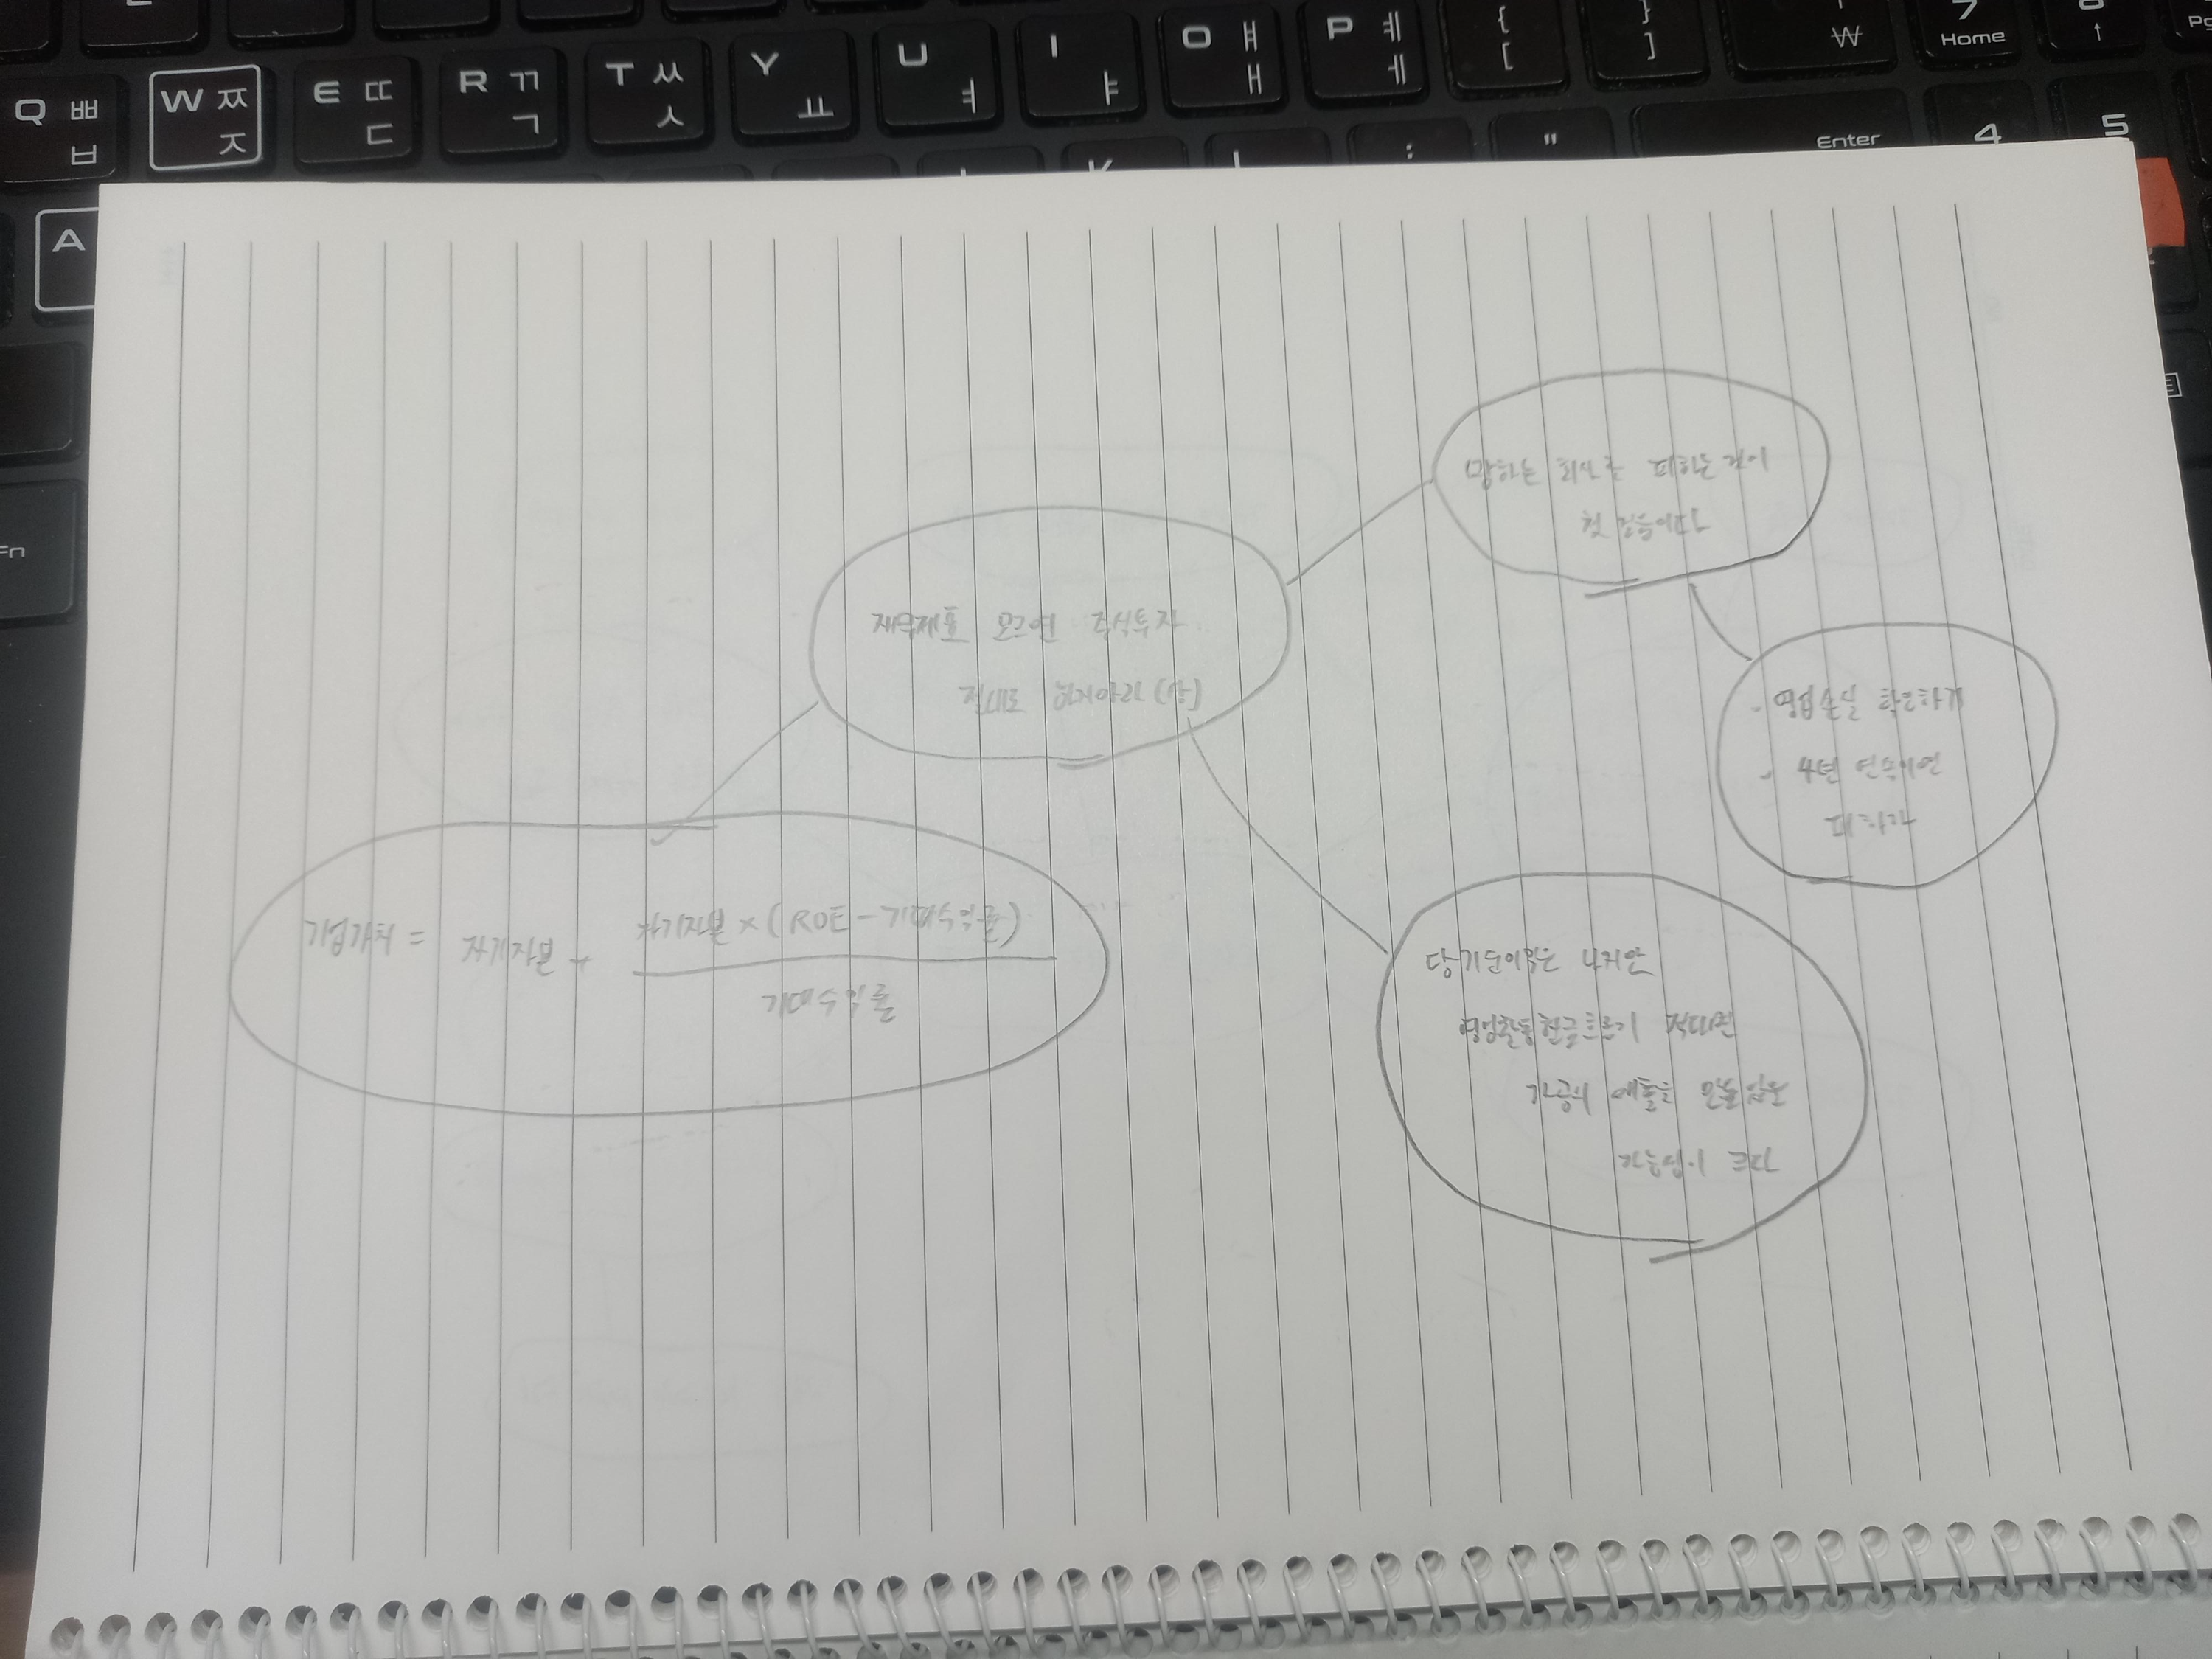 Q ㅃ ㅂ
W ㅉ ㅈ
E ㄸ ㄷ
R ㄲ ㄱ
T ㅆ ㅅ
Y ㅛ
U ㅕ
I ㅑ
O ㅒ ㅐ
P ㅖ ㅔ
{ [
} ]
₩
7 Home
↑
A
:
"
Enter
4
5
Fn
망하는 회사를 피하는 것이
첫 걸음이다
재무제표 모르면 주식투자
절대로 하지마라 (상)
- 영업손실 확인하기
- 4년 연속이면
피하라
기업가치 = 자기자본 + 자기자본 × (ROE - 기대수익률)
기대수익률
당기순이익은 나지만
영업활동현금흐름이 적다면
가공의 매출을 만들었을
가능성이 크다